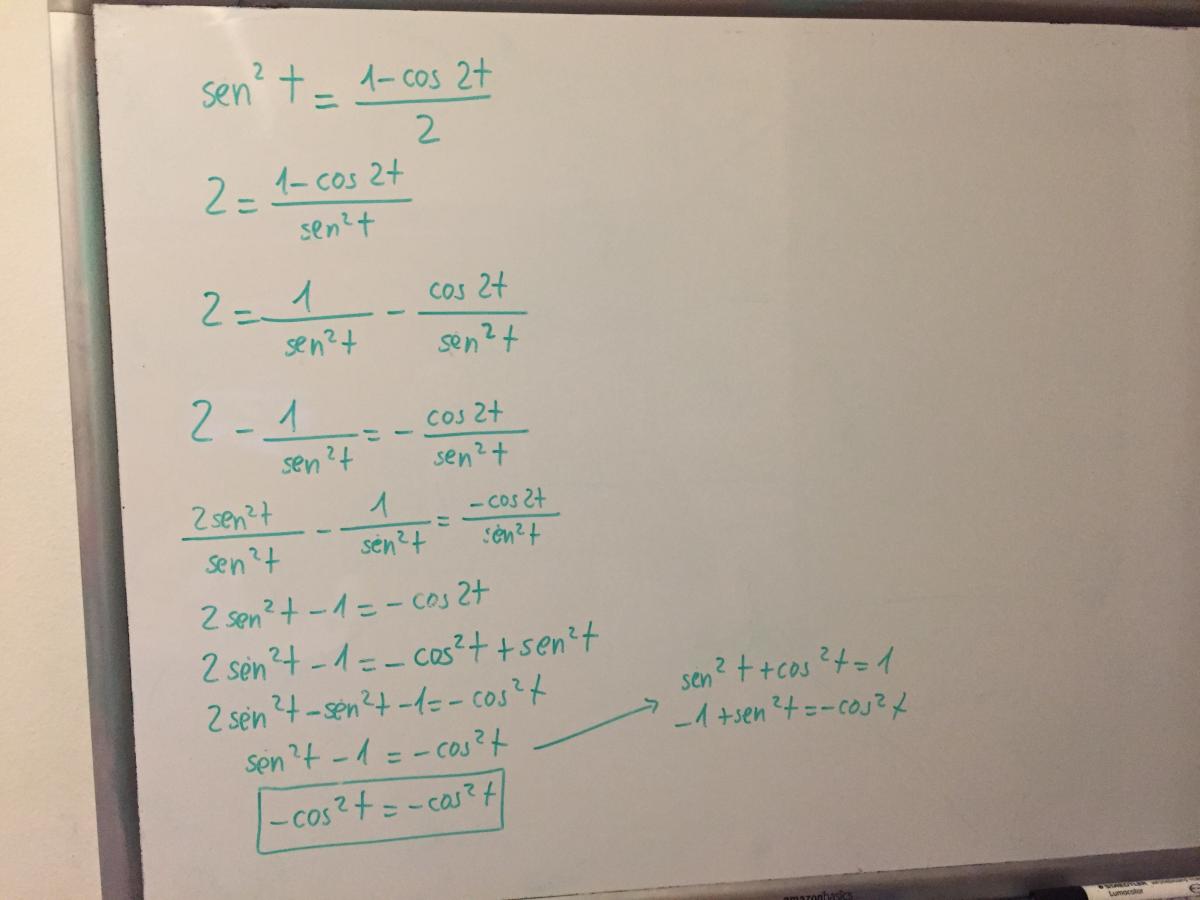 sen² t = (1 - cos 2t)/2
2 = (1 - cos 2t)/(sen² t)
2 = 1/(sen² t) - (cos 2t)/(sen² t)
2 - 1/(sen² t) = - (cos 2t)/(sen² t)
(2 sen² t)/(sen² t) - 1/(sen² t) = (-cos 2t)/(sen² t)
2 sen² t - 1 = - cos 2t
2 sen² t - 1 = - cos² t + sen² t
2 sen² t - sen² t - 1 = - cos² t
sen² t - 1 = - cos² t →
- cos² t = - cos² t
sen² t + cos² t = 1
-1 + sen² t = - cos² t
amazonbasics
STAEDTLER
Lumocolor